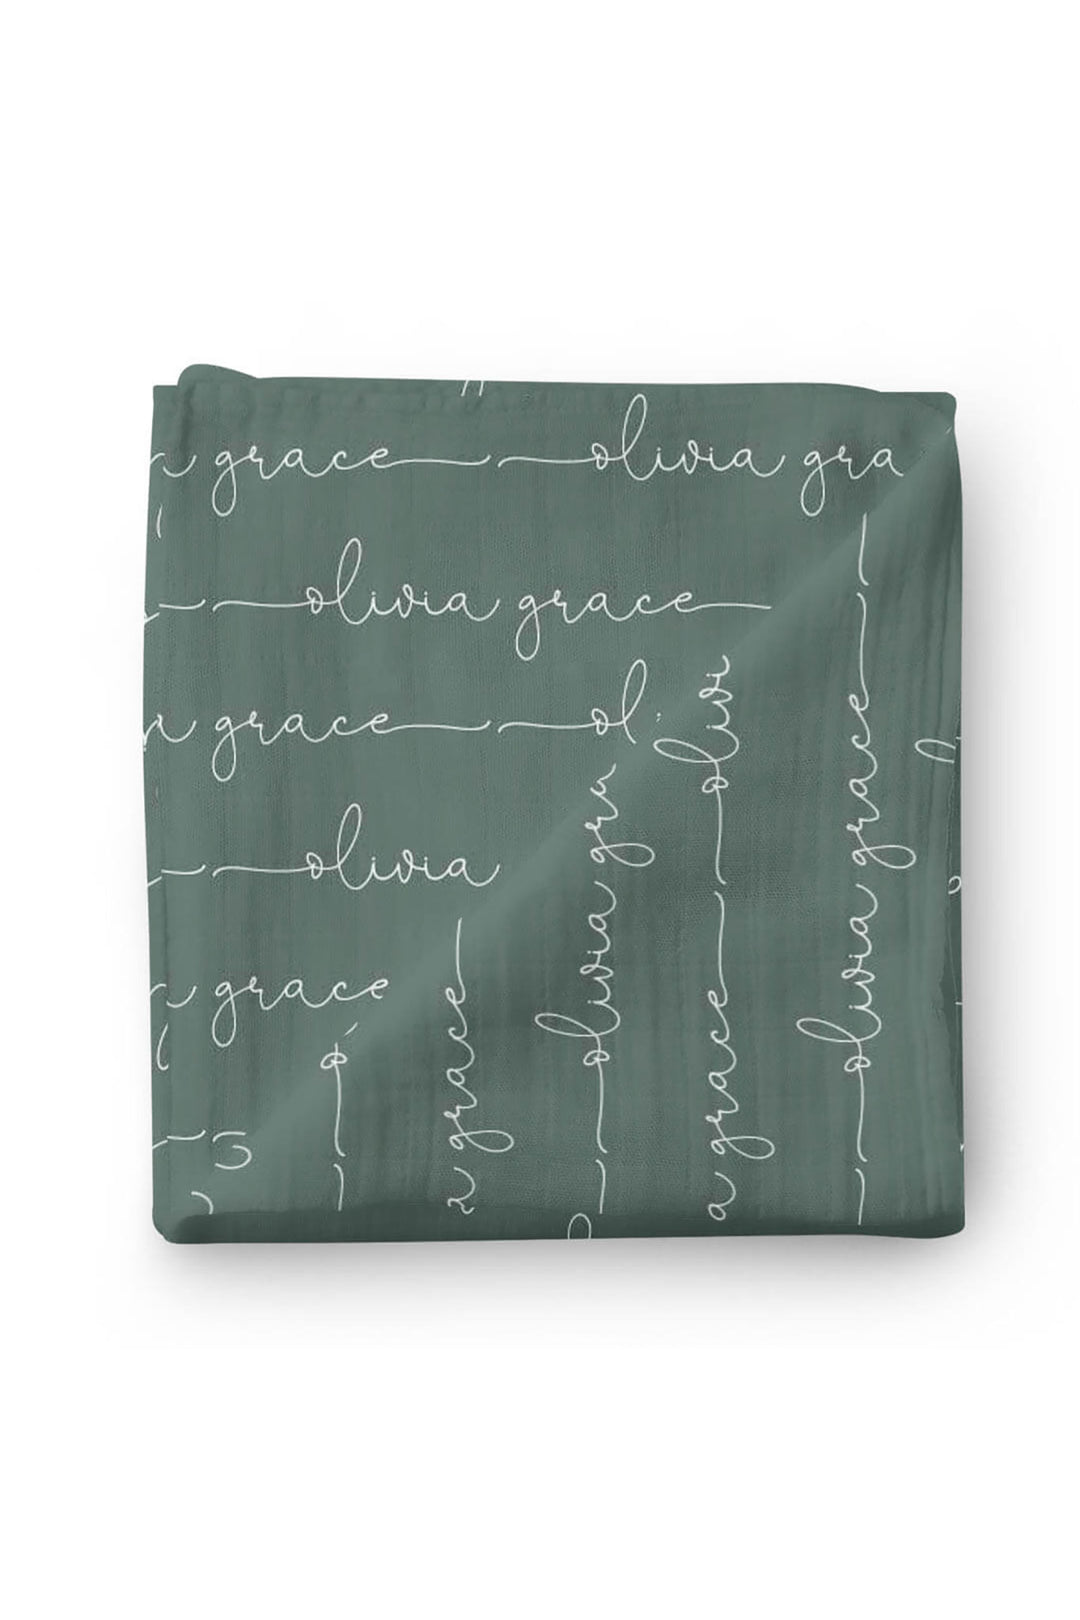 grace olivia gra
olivia grace
grace ol
olivia
grace
olivi
olivia gra
grace
olivia grace
a grace